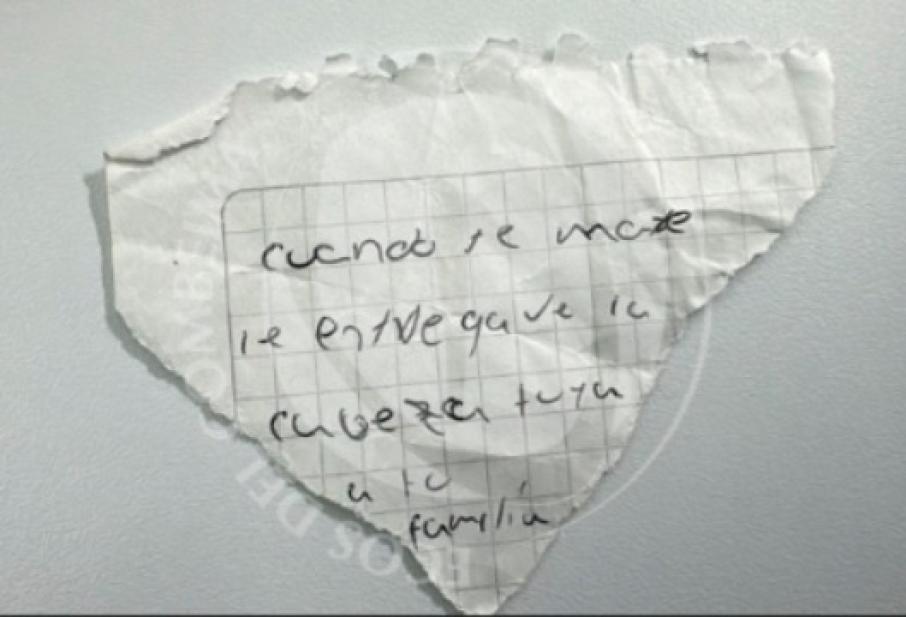 cuando te mate
le entregare la
cabeza tuya
a tu
familia
ECOS DEL COMBEIMA